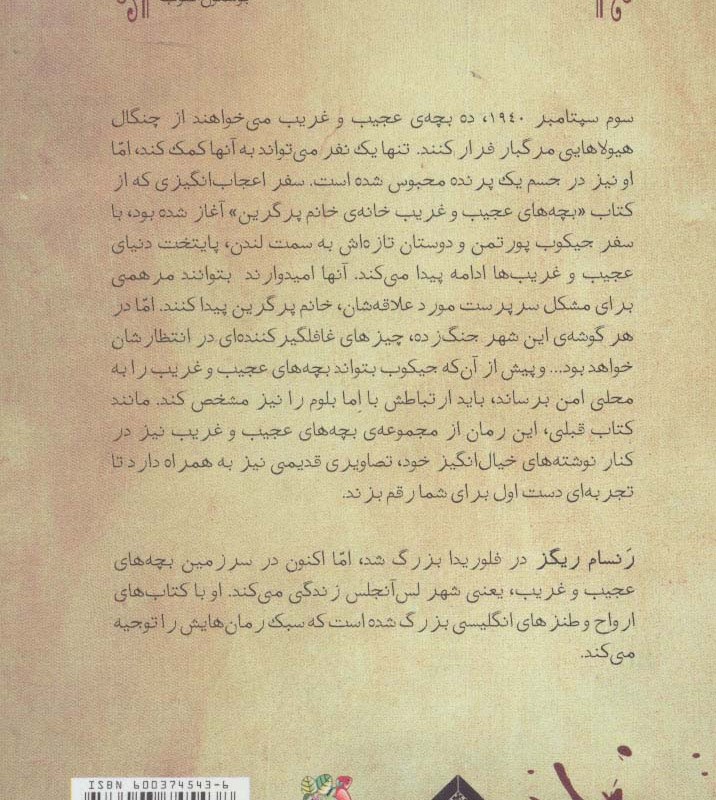 سوم سپتامبر ۱۹٤۰، ده بچه‌ی عجیب و غریب می‌خواهند از چنگال
هیولاهایی مرگبار فرار کنند. تنها یک نفر می‌تواند به آنها کمک کند، امّا
او نیز در جسم یک پرنده محبوس شده است. سفر اعجاب‌انگیزی که از
کتاب «بچه‌های عجیب و غریب خانه‌ی خانم پرگرین» آغاز شده بود، با
سفر جیکوب پورتمن و دوستان تازه‌اش به سمت لندن، پایتخت دنیای
عجیب و غریب‌ها ادامه پیدا می‌کند. آنها امیدوارند بتوانند مرهمی
برای مشکل سرپرست مورد علاقه‌شان، خانم پرگرین پیدا کنند. امّا در
هر گوشه‌ی این شهر جنگ‌زده، چیزهای غافلگیرکننده‌ای در انتظارشان
خواهد بود... و پیش از آن‌که جیکوب بتواند بچه‌های عجیب و غریب را به
محلی امن برساند، باید ارتباطش با اِما بلوم را نیز مشخص کند. مانند
کتاب قبلی، این رمان از مجموعه‌ی بچه‌های عجیب و غریب نیز در
کنار نوشته‌های خیال‌انگیز خود، تصاویری قدیمی نیز به همراه دارد تا
تجربه‌ای دست اول برای شما رقم بزند.
رَنسام ریگز در فلوریدا بزرگ شد، امّا اکنون در سرزمین بچه‌های
عجیب و غریب، یعنی شهر لس‌آنجلس زندگی می‌کند. او با کتاب‌های
ارواح و طنزهای انگلیسی بزرگ شده است که سبک رمان‌هایش را توجیه
می‌کند.
ISBN 600374543-6